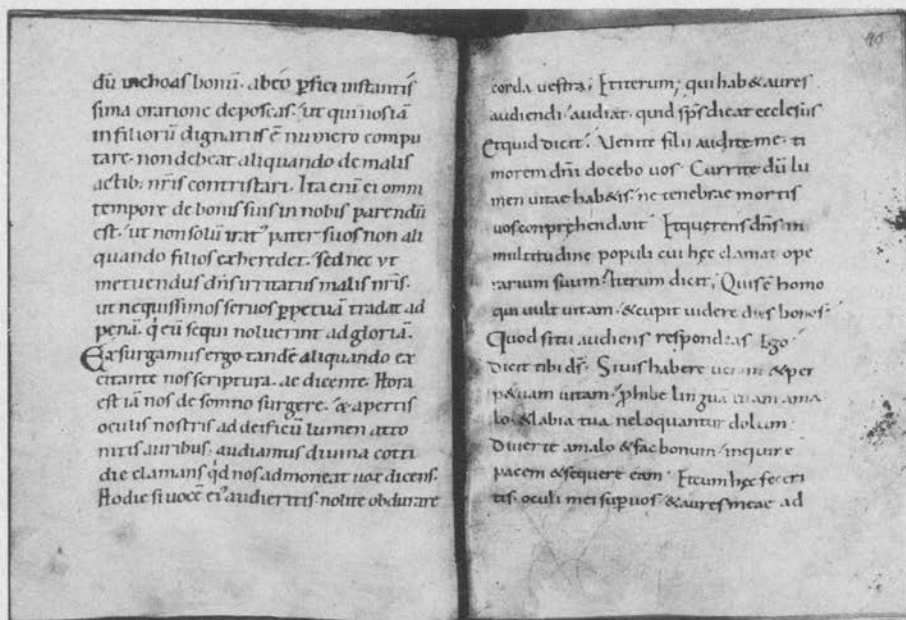 dū inchoas bonū · ab eo ꝑfici instantis
sima oratione deposcas ·ut qui nos iā
in filiorū dignatus ē numero compu
tare · non debeat aliquando de malis
actib; nr̄is contristari · Ita enī ei omni
tempore de bonis suis in nobis parendū
est · ut non solū irat᾿ pater suos non ali
quando filios exheredet · sed nec ut
metuendus dn̄s irritatus malis nr̄is ·
ut nequissimos seruos ꝑpetuā tradat ad
pęnā · q̄ eū sequi noluerint ad gloriā ·
Exsurgamus ergo tandē aliquando ex
citante nos scriptura · ac dicente · Hora
est iā nos de somno surgere · & apertis
oculis nostris ad deificū lumen atto
nitis auribus · audiamus diuina cotti
die clamans q̇d nos admoneat uox dicens ·
Hodie si uocē ei᾿ audieritis · nolite obdurare
40
corda uestra; Et iterum; qui hab& aures
audiendi · audiat · quid sp̄s dicat ecclesiis
Et quid dicit · Uenite filii audite me · ti
morem dn̄i docebo uos · Currite dū lu
men uitae hab&is · ne tenebrae mortis
uos conprehendant · Et querens dn̄s in
multitudine populi cui hęc clamat ope
rarium suum · Iterum dicit; Quis ē homo
qui uult uitam · & cupit uidere dies bonos ·
Quod si tu audiens respondeas Ego ·
Dicit tibi ds̄ · Si uis habere ueram & per
p&uam uitam · ꝓhibe linguā tuam a ma
lo · & labia tua ne loquantur dolum ·
Diuerte a malo & fac bonum · inquire
pacem & sequere eam · Et cum hęc feceri
tis · oculi mei sup uos · & aures meae ad